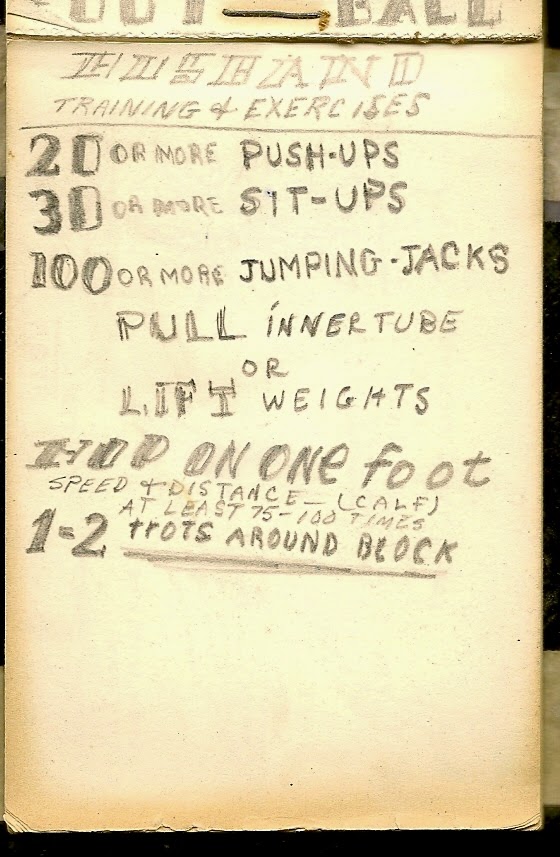 FOOT BALL
TRAINING & EXERCISES
20 OR MORE PUSH-UPS
30 OR MORE SIT-UPS
100 OR MORE JUMPING-JACKS
PULL INNERTUBE
OR
LIFT WEIGHTS
HOP ON ONE foot
SPEED & DISTANCE — (CALF)
AT LEAST 75-100 TIMES
1-2 trOTS AROUND BLOCK